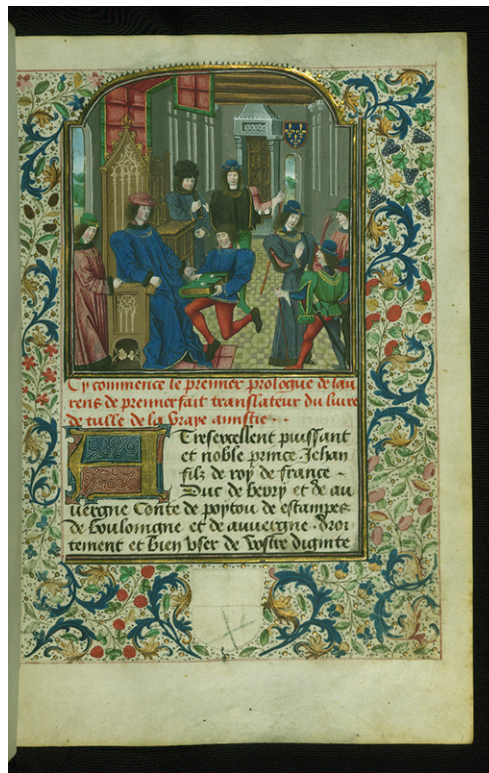 Cy commence le premier prologue de lau
rens de premier fait translateur du liure
de tulle de la vraye amistie
A Tresexcellent puissant
et noble prince Jehan
filz de roy de france
Duc de berry et de au
uergne Conte de poytou de estampes
de boulomgne et de auuergne droi
tement et bien vser de vostre dignite